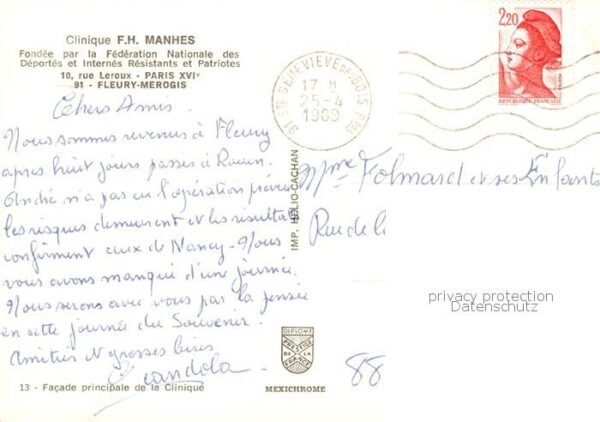 Clinique F.H. MANHES
Fondée par la Fédération Nationale des
Déportés et Internés Résistants et Patriotes
10, rue Leroux - PARIS XVIe
91 - FLEURY-MEROGIS
Chers Amis.
Nous sommes revenus à Fleury
après huit jours passés à Rouen.
André n'a pas eu l'opération prévue
les risques demeurent et les résultats
confirment ceux de Nancy - Nous
vous avons manqué d'une journée.
Nous serons avec vous par la pensée
en cette journée du Souvenir.
Amitiés et grosses bises
13 - Façade principale de la Clinique
IMP. HELIO-CACHAN
DIPLOME
PRESTIGE
DE LA
FRANCE
MEXICHROME
91 STE GENEVIEVE DES BOIS PPAL
17 H
25-4
1989
2,20
REPUBLIQUE FRANÇAISE
Mme Folmard et ses Enfants
Rue de l
privacy protection
Datenschutz
88